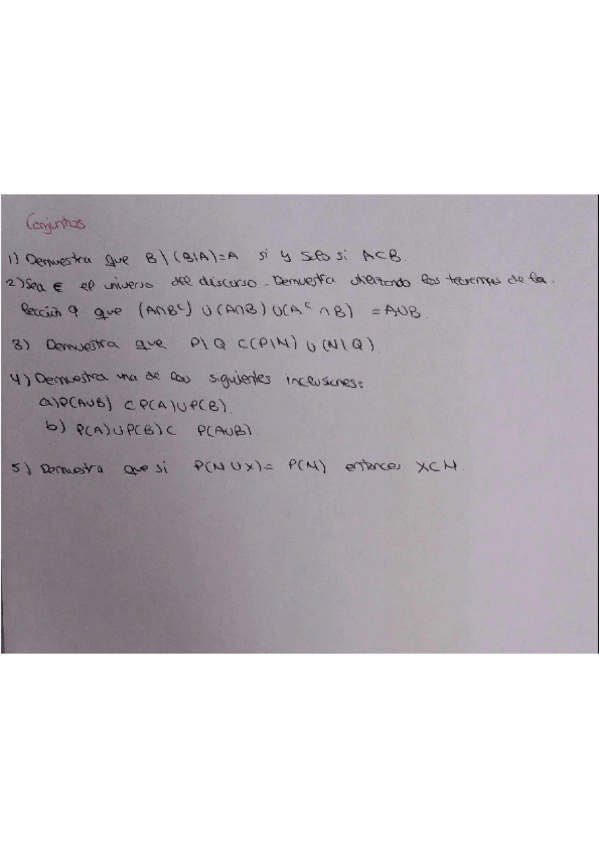 Conjuntos
1) Demuestra que B\(B\A)=A si y solo si A⊂B.
2) Sea E el universo del discurso. Demuestra utilizando los teoremas de la
lección 9 que (A∩Bᶜ) ∪(A∩B) ∪(Aᶜ∩B) = A∪B.
3) Demuestra que P\Q ⊂(P\N) ∪(N\Q)
4) Demuestra una de las siguientes inclusiones:
a) P(A∪B) ⊂ P(A)∪P(B).
b) P(A)∪P(B)⊂ P(A∪B).
5) Demuestra que si P(N∪X)= P(N) entonces X⊂N.